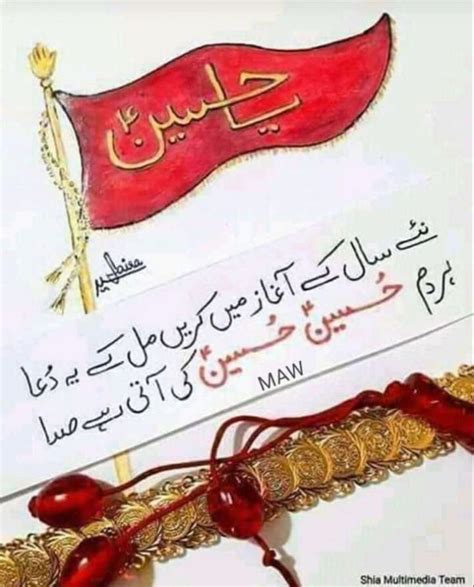 یا حسینؑ
نئے سال کے آغاز میں کریں مل کے یہ دُعا
ہر دم حُسینؑ حُسینؑ کی آتی رہے صدا
MAW
Shia Multimedia Team